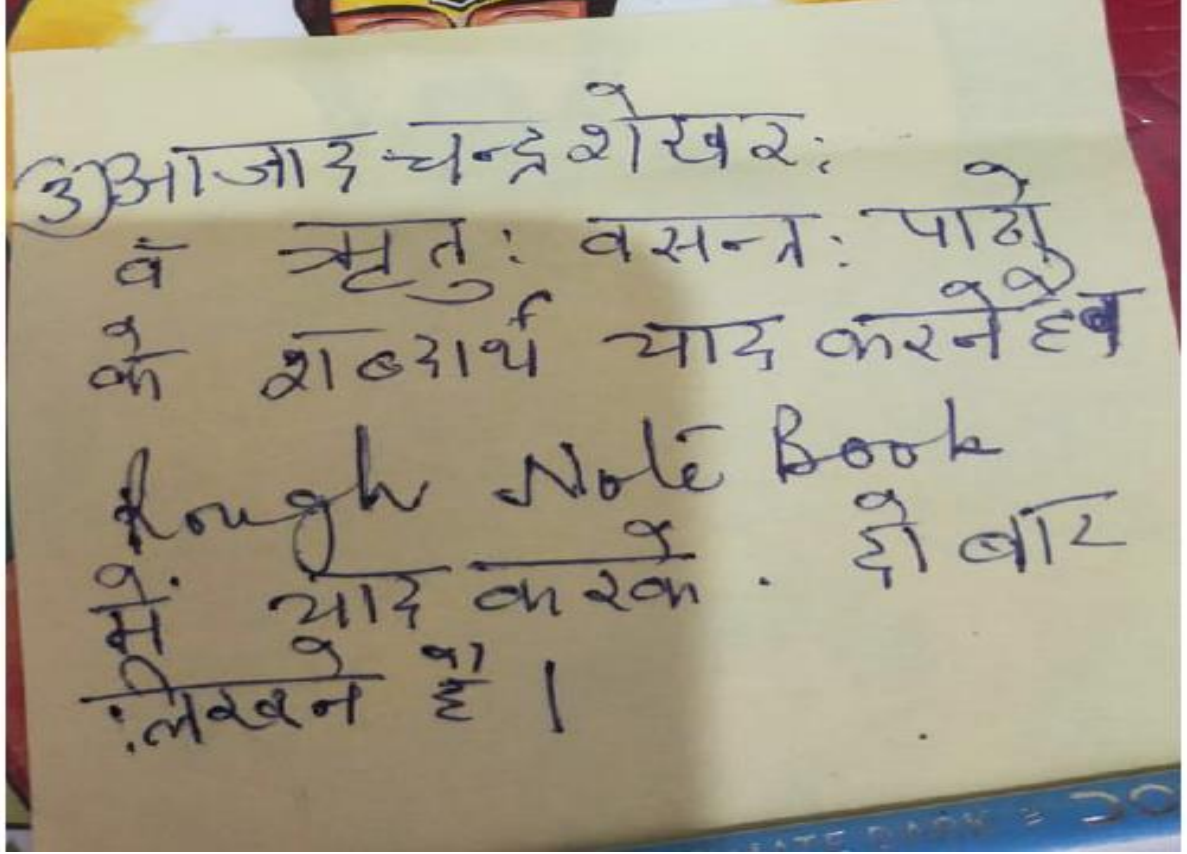 ③ आजाद चन्द्र शेखर:
व ऋतु: वसन्त: पाठों
के शब्दार्थ याद करने है व
Rough Note Book
में याद करके . दो बार
लिखने है ।